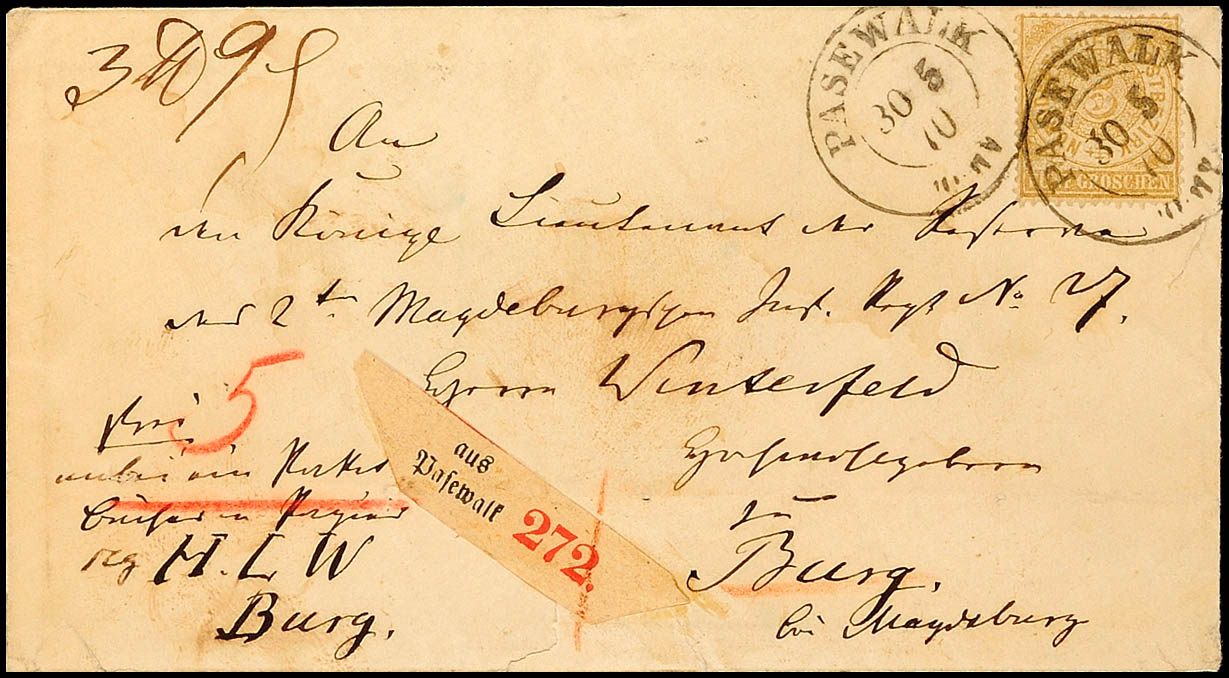 3 ℔ 9
PASEWALK
30 5
10
PASEWALK
30 5
10
GROSCHEN
An
den Königl Lieutenant der Reserve
des 2ten Magdeburgschen Inf. Regt No 27.
Herrn Winterfeld
5
frei
anbei ein Packet
Bücher u Papier
H. L W
Burg.
aus
Pasewalk
272.
Hochwohlgeboren
zu
Burg.
bei Magdeburg